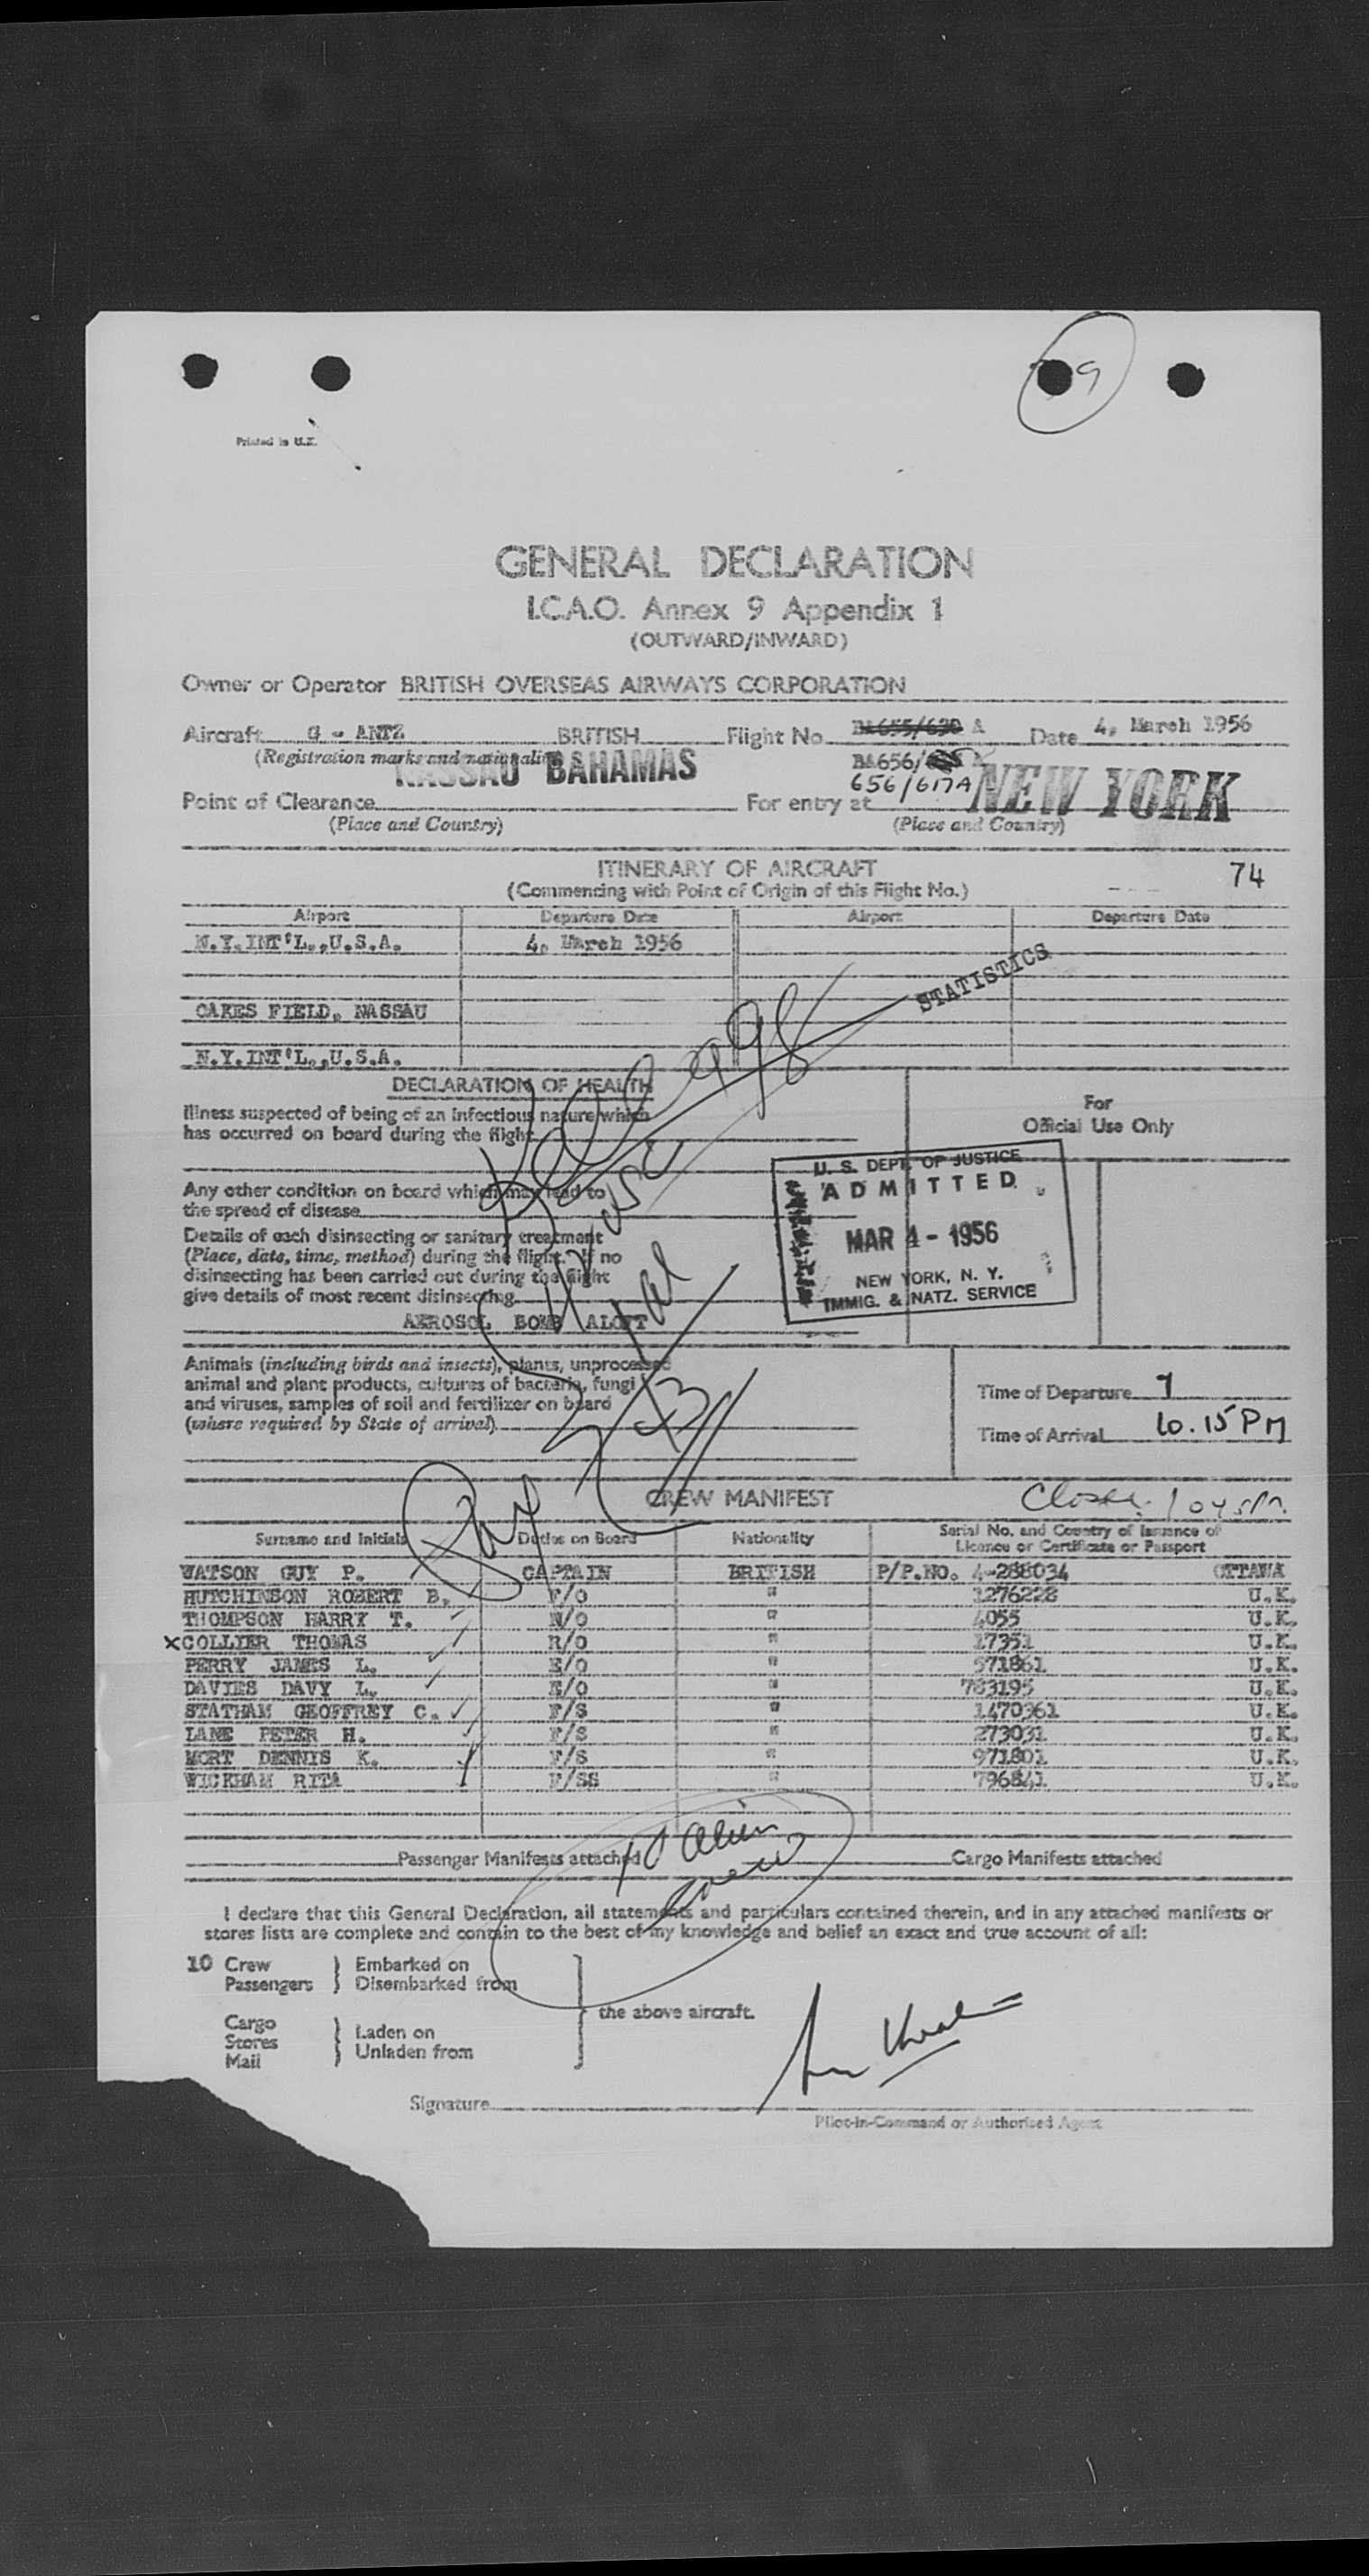 9
Printed in U.K.
GENERAL DECLARATION
I.C.A.O. Annex 9 Appendix 1
(OUTWARD/INWARD)
Owner or Operator BRITISH OVERSEAS AIRWAYS CORPORATION
Aircraft G - ANTZ BRITISH Flight No. BA655/630 A Date 4, March 1956
(Registration marks and nationality)
NASSAU BAHAMAS BA656/
656/617A NEW YORK
Point of Clearance For entry at
(Place and Country) (Place and Country)
ITINERARY OF AIRCRAFT 74
(Commencing with Point of Origin of this Flight No.)
Airport Departure Date Airport Departure Date
N.Y.INT'L.,U.S.A. 4, March 1956
STATISTICS
OAKES FIELD, NASSAU
N.Y.INT'L.,U.S.A.
DECLARATION OF HEALTH
For
Official Use Only
Illness suspected of being of an infectious nature which
has occurred on board during the flight
Any other condition on board which may lead to
the spread of disease
Details of each disinsecting or sanitary treatment
(Place, date, time, method) during the flight. If no
disinsecting has been carried out during the flight
give details of most recent disinsecting
AEROSOL BOMB ALOFT
U. S. DEPT. OF JUSTICE
ADMITTED
MAR 4 - 1956
NEW YORK, N. Y.
IMMIG. & NATZ. SERVICE
Animals (including birds and insects), plants, unprocessed
animal and plant products, cultures of bacteria, fungi
and viruses, samples of soil and fertilizer on board
(where required by State of arrival)
Time of Departure 7
Time of Arrival 10.15 PM
CREW MANIFEST
Surname and Initials Duties on Board Nationality Serial No. and Country of Issuance of
Licence or Certificate or Passport
WATSON GUY P. CAPTAIN BRITISH P/P.NO. 4-288034 OTTAWA
HUTCHINSON ROBERT B. F/O " 1276228 U.K.
THOMPSON HARRY T. N/O " 4055 U.K.
X COLLIER THOMAS R/O " 17351 U.K.
PERRY JAMES L. E/O " 571861 U.K.
DAVIES DAVY L. E/O " 783195 U.K.
STATHAM GEOFFREY C. F/S " 1470361 U.K.
LANE PETER H. F/S " 273031 U.K.
MORT DENNIS K. F/S " 971801 U.K.
WICKHAM RITA F/SS " 796841 U.K.
10 alien
crew
Passenger Manifests attached Cargo Manifests attached
I declare that this General Declaration, all statements and particulars contained therein, and in any attached manifests or
stores lists are complete and contain to the best of my knowledge and belief an exact and true account of all:
10 Crew Embarked on
Passengers Disembarked from
the above aircraft.
Cargo
Stores Laden on
Mail Unladen from
Signature
Pilot-in-Command or Authorised Agent